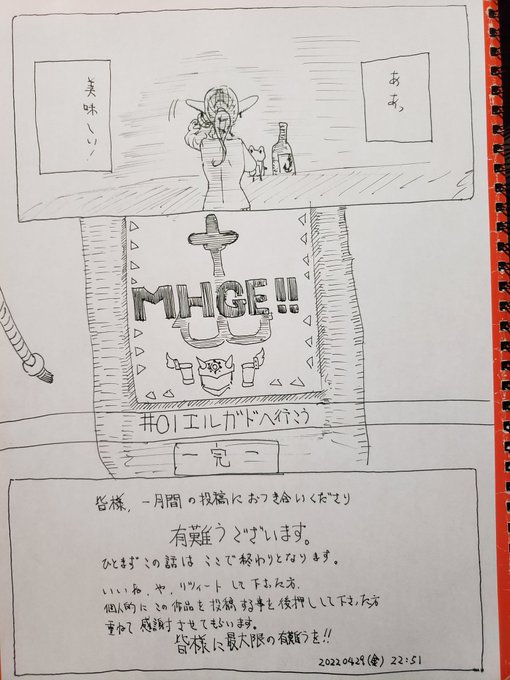 ああっ
美味しい！
MHGE!!
#01エルガドへ行こう
完
皆様、一月間の投稿におつき合いくださり
有難うございます。
ひとまずこの話はここで終わりとなります。
いいね、や、リツィートして下さった方、
個人的にこの作品を投稿する事を後押しして下さった方
重ねて感謝させてもらいます。
皆様に最大限の有難うを!!
20220429(金) 22:51